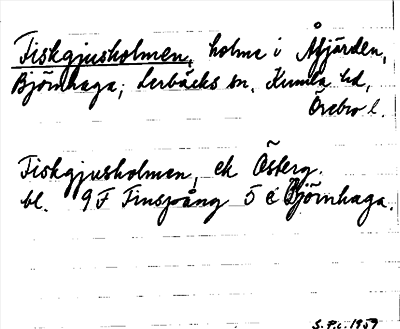 Fiskgjusholmen, holme i Åfjärden,
Björnhaga, Lerbäcks sn, Kumla hd,
Örebro l.
Fiskgjusholmen, ek Östberg.
bl. 9F Finspång 5 c Björnhaga.
S.P.c. 1959